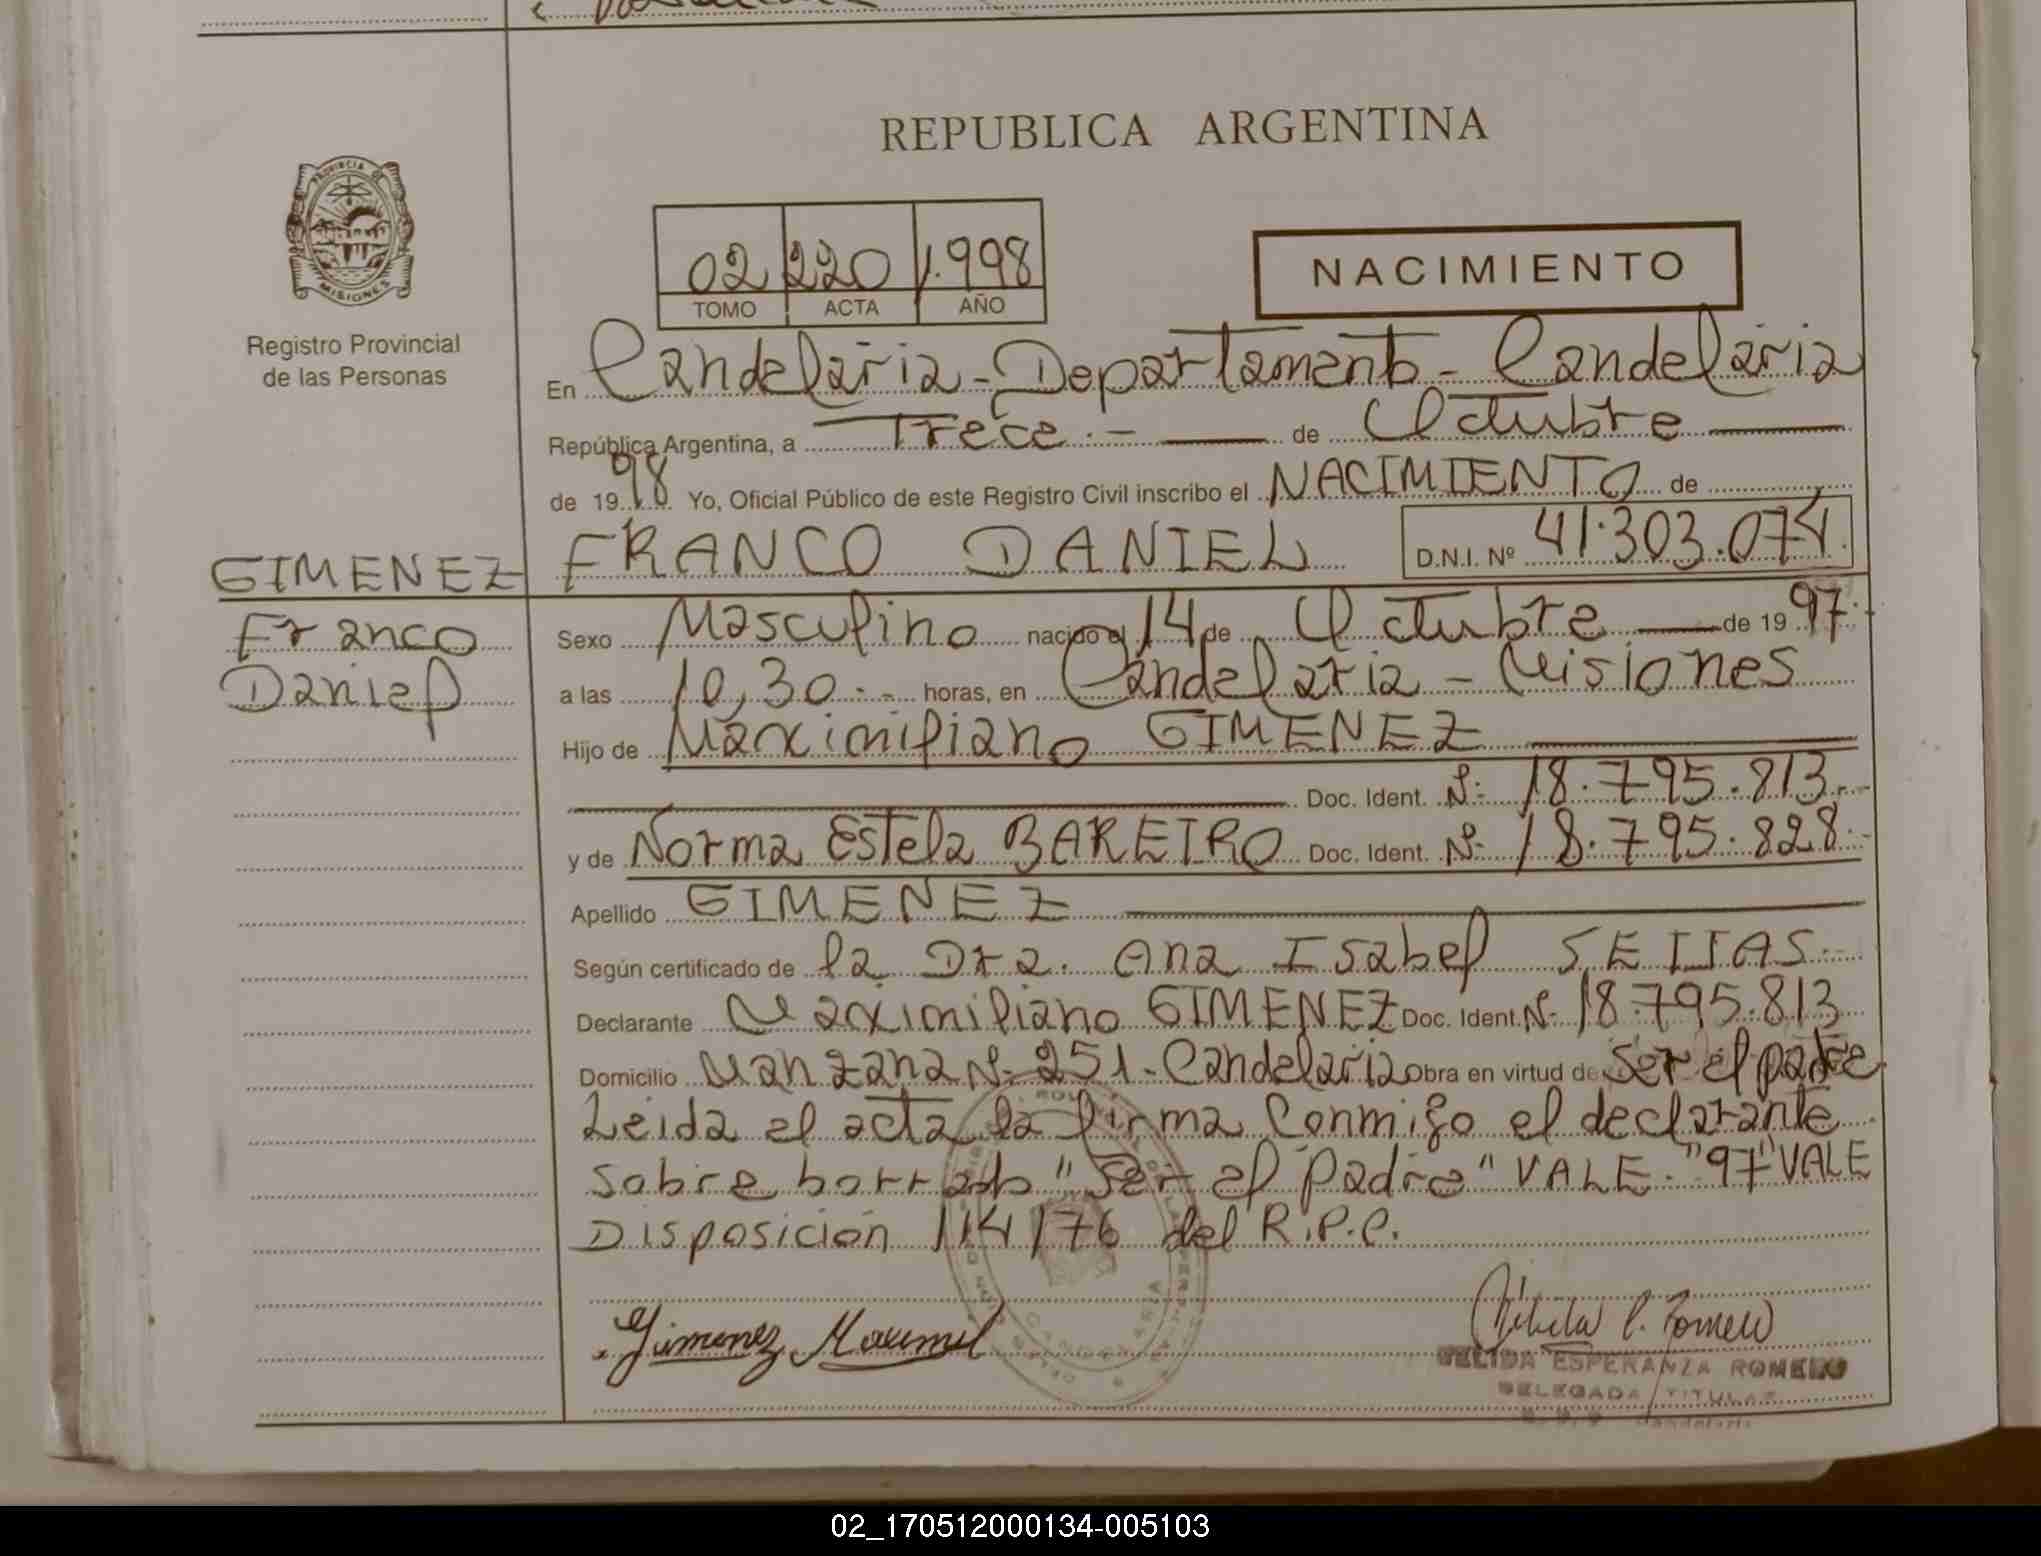 REPUBLICA ARGENTINA
PROVINCIA DE
MISIONES
Registro Provincial
de las Personas
02 220 1.998
TOMO ACTA AÑO
NACIMIENTO
En Candelaria - Departamento - Candelaria
República Argentina, a Trece.- de Octubre
de 1998 Yo, Oficial Público de este Registro Civil inscribo el NACIMIENTO de
GIMENEZ FRANCO DANIEL D.N.I. Nº 41.303.074
Franco
Daniel
Sexo Masculino nacido el 14 de Octubre de 1997.-
a las 10,30.- horas, en Candelaria - Misiones
Hijo de Marximiliano GIMENEZ
Doc. Ident. Nº 18.795.813.-
y de Norma Estela BAREIRO Doc. Ident. Nº 18.795.828.-
Apellido GIMENEZ
Según certificado de la Dra. Ana Isabel
Declarante Marximiliano GIMENEZ Doc. Ident. Nº 18.795.813
Domicilio Manzana Nº 251 - Candelaria Obra en virtud de ser el padre
Leida el acta la firma conmigo el declarante
sobre borrado "ser el padre" VALE. "97" VALE
Disposición 114/76 del R.P.P.
Gimenez
ESPERANZA ROMERO
DELEGADA TITULAR
Candelaria
02_170512000134-005103